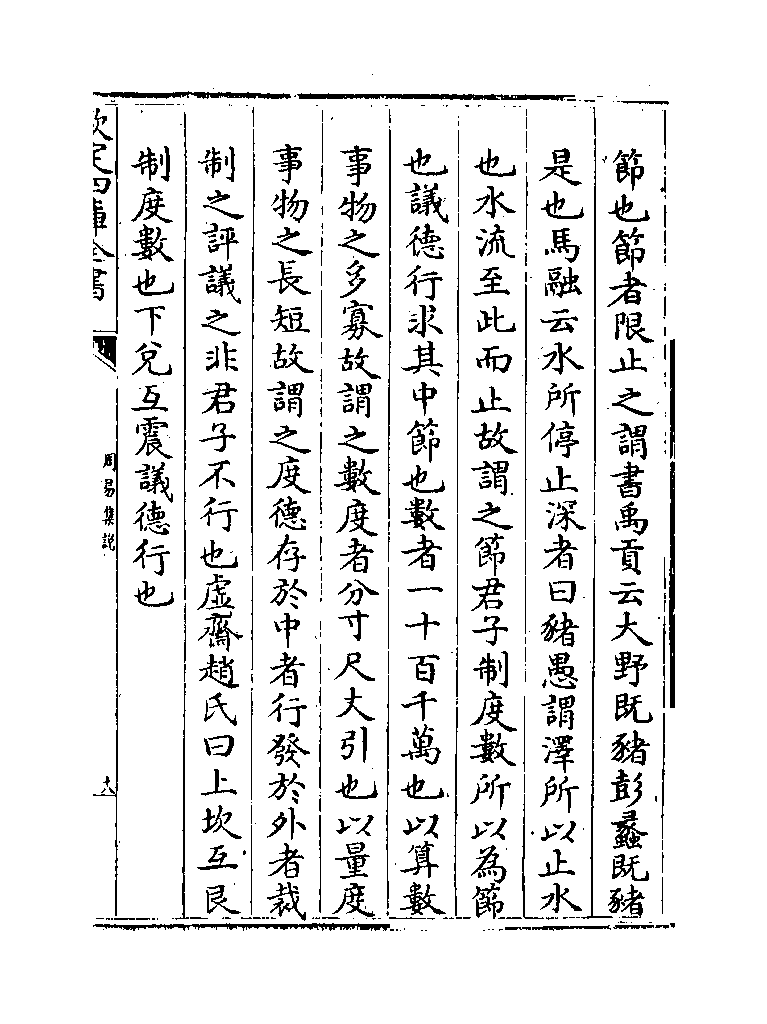 節也節者限止之謂書禹貢云大野既豬彭蠡既豬
是也馬融云水所停止深者曰豬愚謂澤所以止水
也水流至此而止故謂之節君子制度數所以為節
也議德行求其中節也數者一十百千萬也以算數
事物之多寡故謂之數度者分寸尺丈引也以量度
事物之長短故謂之度德存於中者行發於外者裁
制之評議之非君子不行也虛齋趙氏曰上坎互艮
制度數也下兌互震議德行也
欽定四庫全書
周易集說